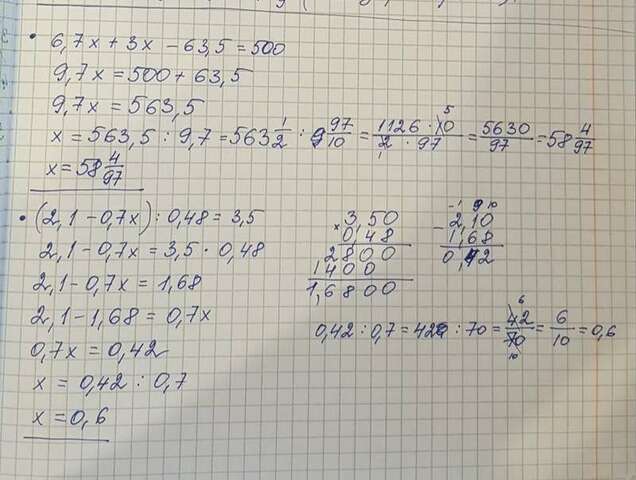 • 6,7x + 3x − 63,5 = 500
9,7x = 500 + 63,5
9,7x = 563,5
x = 563,5 : 9,7 = 563 1/2 : 97/10 = 1126 · 10/2 · 97 = 5630/97 = 58 4/97
x = 58 4/97
• (2,1 − 0,7x) : 0,48 = 3,5
2,1 − 0,7x = 3,5 · 0,48
2,1 − 0,7x = 1,68
2,1 − 1,68 = 0,7x
0,7x = 0,42
x = 0,42 : 0,7
x = 0,6
3,50
× 0,48
2800
1400
1,6800
− 2,10
1,68
0,42
0,42 : 0,7 = 42 : 70 = 42/70 = 6/10 = 0,6